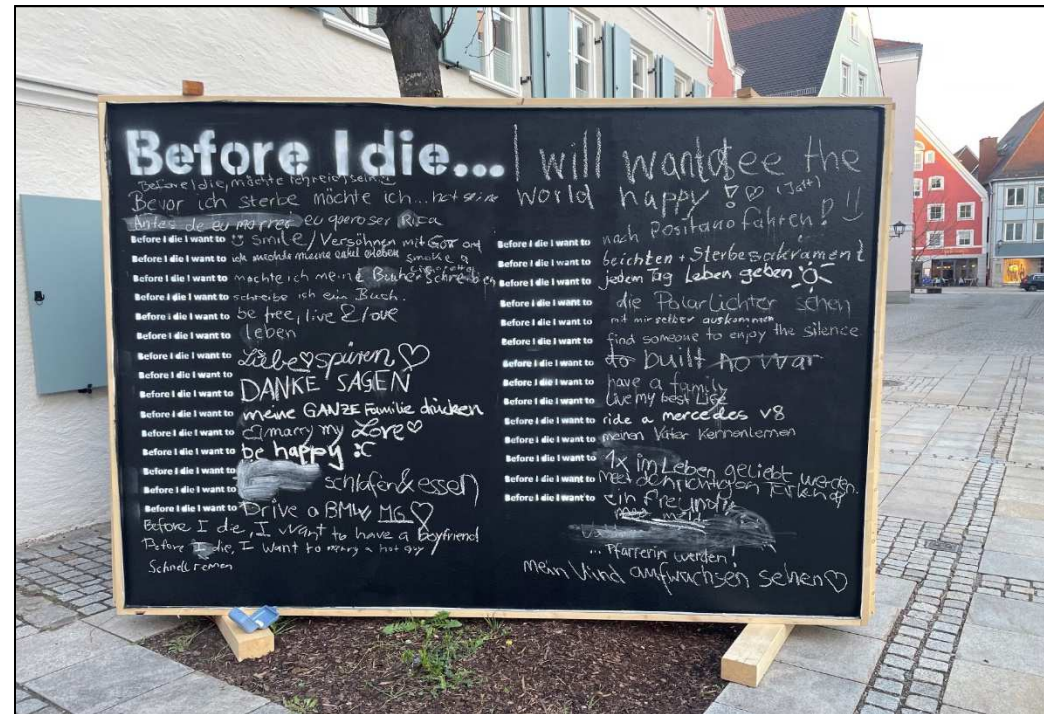 Before I die...
I will want see the
world happy! ♡ (Jdt)
Before I die, möchte ich reich sein
Bevor ich sterbe möchte ich...
Antes de eu morrer eu quero ser Rica
Before I die I want to smile / Versöhnen mit Gott
Before I die I want to ich möchte meine erleben smoke a
Before I die I want to möchte ich meine Bücher schreiben
Before I die I want to schreibe ich ein Buch.
Before I die I want to be free, live & love
Before I die I want to leben
Before I die I want to Liebe ♡ spüren ♡
Before I die I want to DANKE SAGEN
Before I die I want to meine GANZE Familie drücken
Before I die I want to marry my Love ♡
Before I die I want to be happy :C
Before I die I want to
Before I die I want to schlafen & essen
Before I die I want to Drive a BMW MG ♡
Before I die, I want to have a boyfriend
Before I die, I want to marry a hot guy
Schnell rennen
nach Positano fahren!
Before I die I want to beichten + Sterbesakrament
Before I die I want to jedem Tag Leben geben
Before I die I want to die Polarlichter sehen
Before I die I want to mit mir selber auskommen
Before I die I want to find someone to enjoy the silence
Before I die I want to do built no war
Before I die I want to have a family
Before I die I want to Live my best Life
Before I die I want to ride a mercedes v8
Before I die I want to meinen Vater kennenlernen
Before I die I want to
Before I die I want to 1x im Leben geliebt werden.
Before I die I want to
Before I die I want to ein
... Pfarrerin werden!
mein Kind aufwachsen sehen ♡